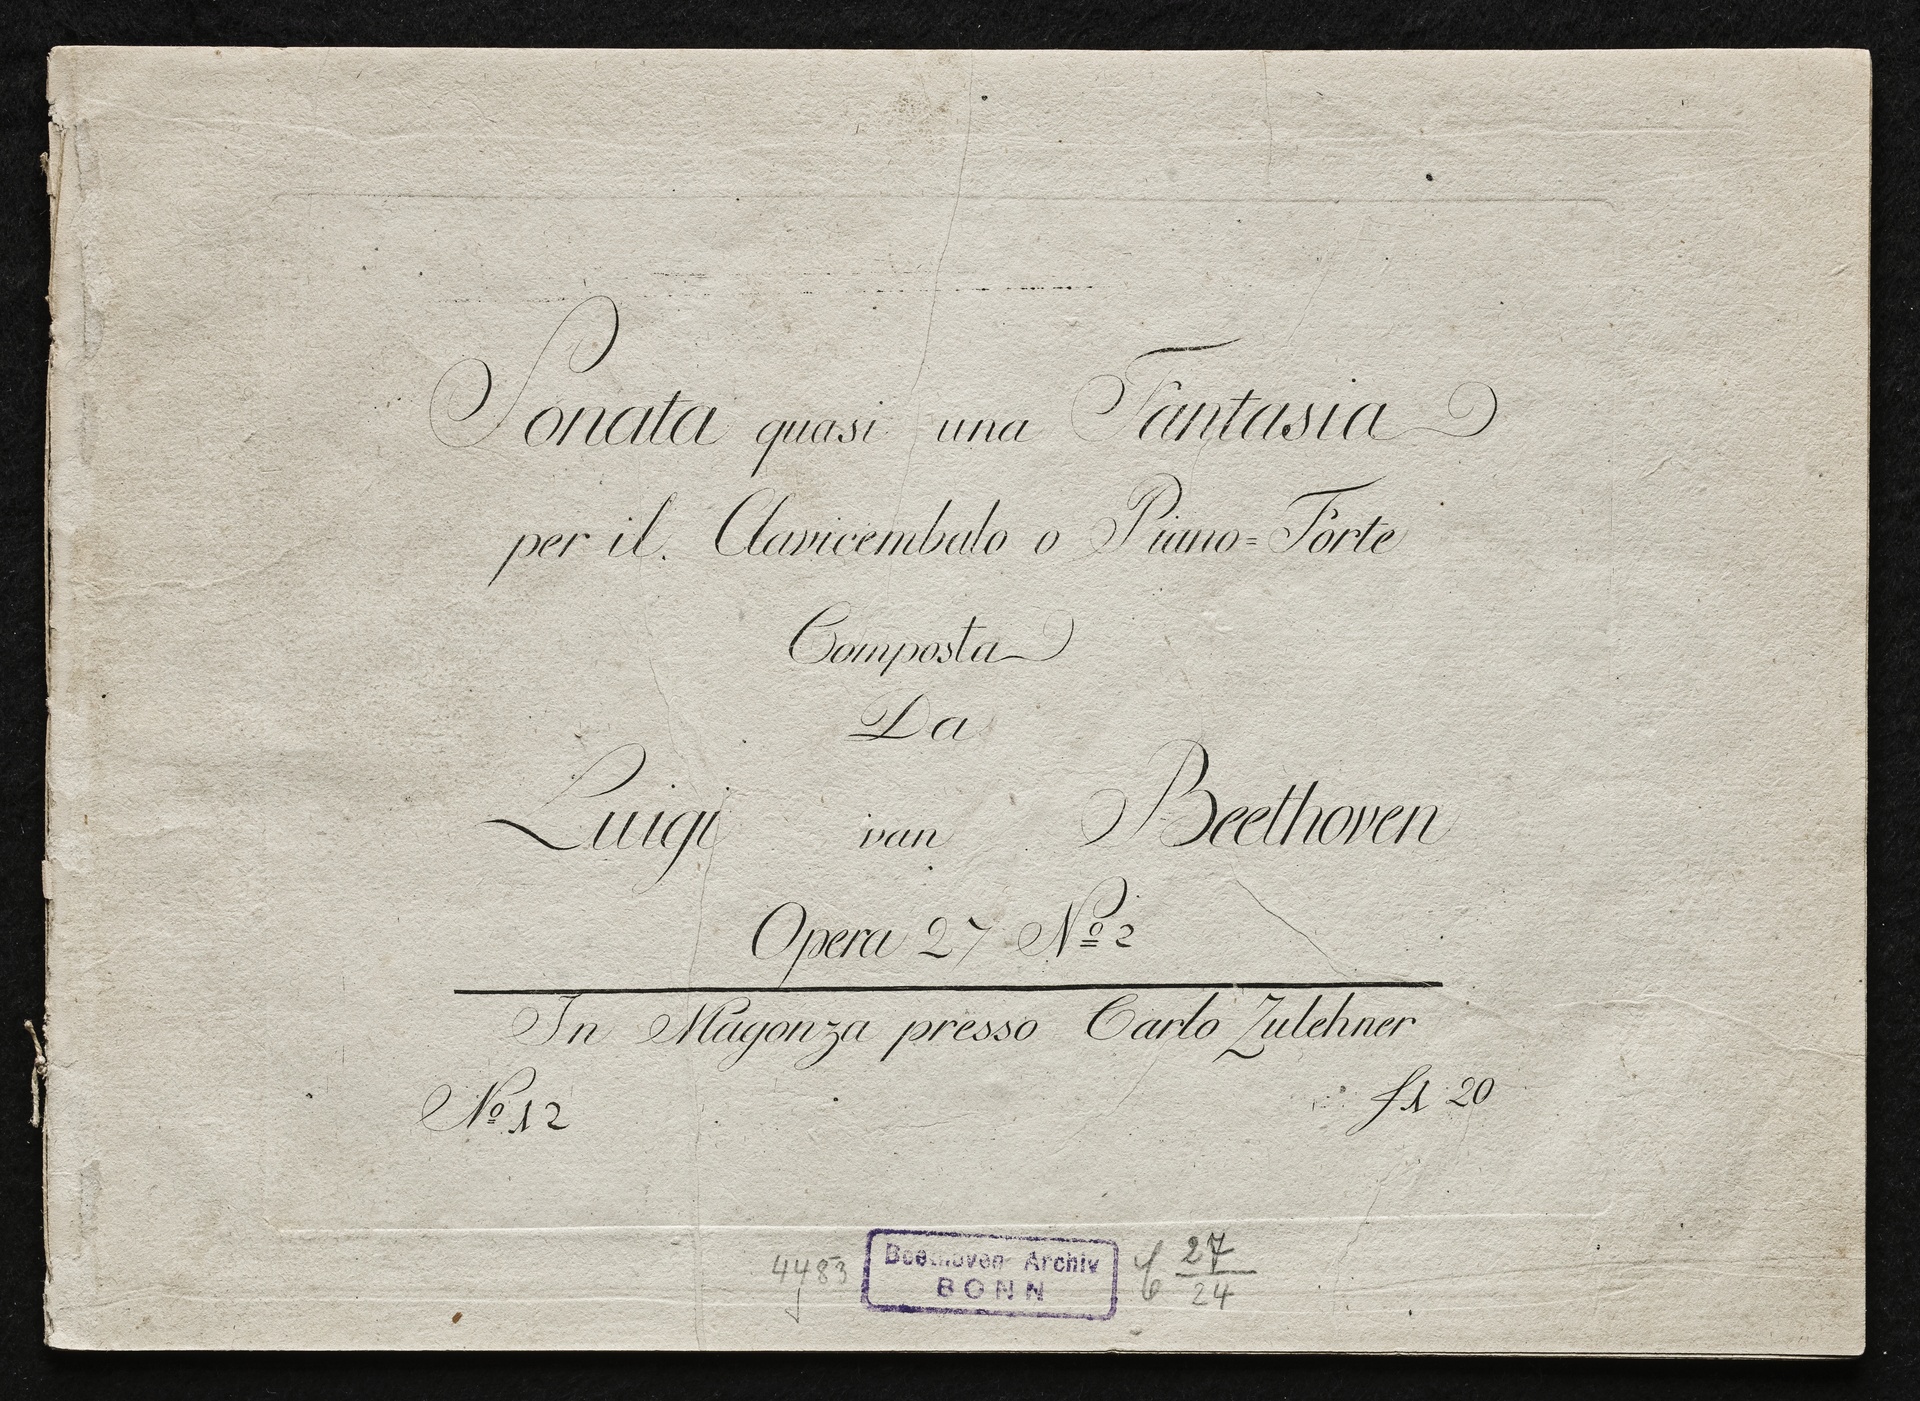 Sonata quasi una Fantasia
per il. Clavicembalo o Piano=Forte
Composta
Da
Luigi van Beethoven
Opera 27 Nº 2
In Magonza presso Carlo Zulehner
Nº 12
f 1 20
4483
Beethoven-Archiv
BONN
27
24